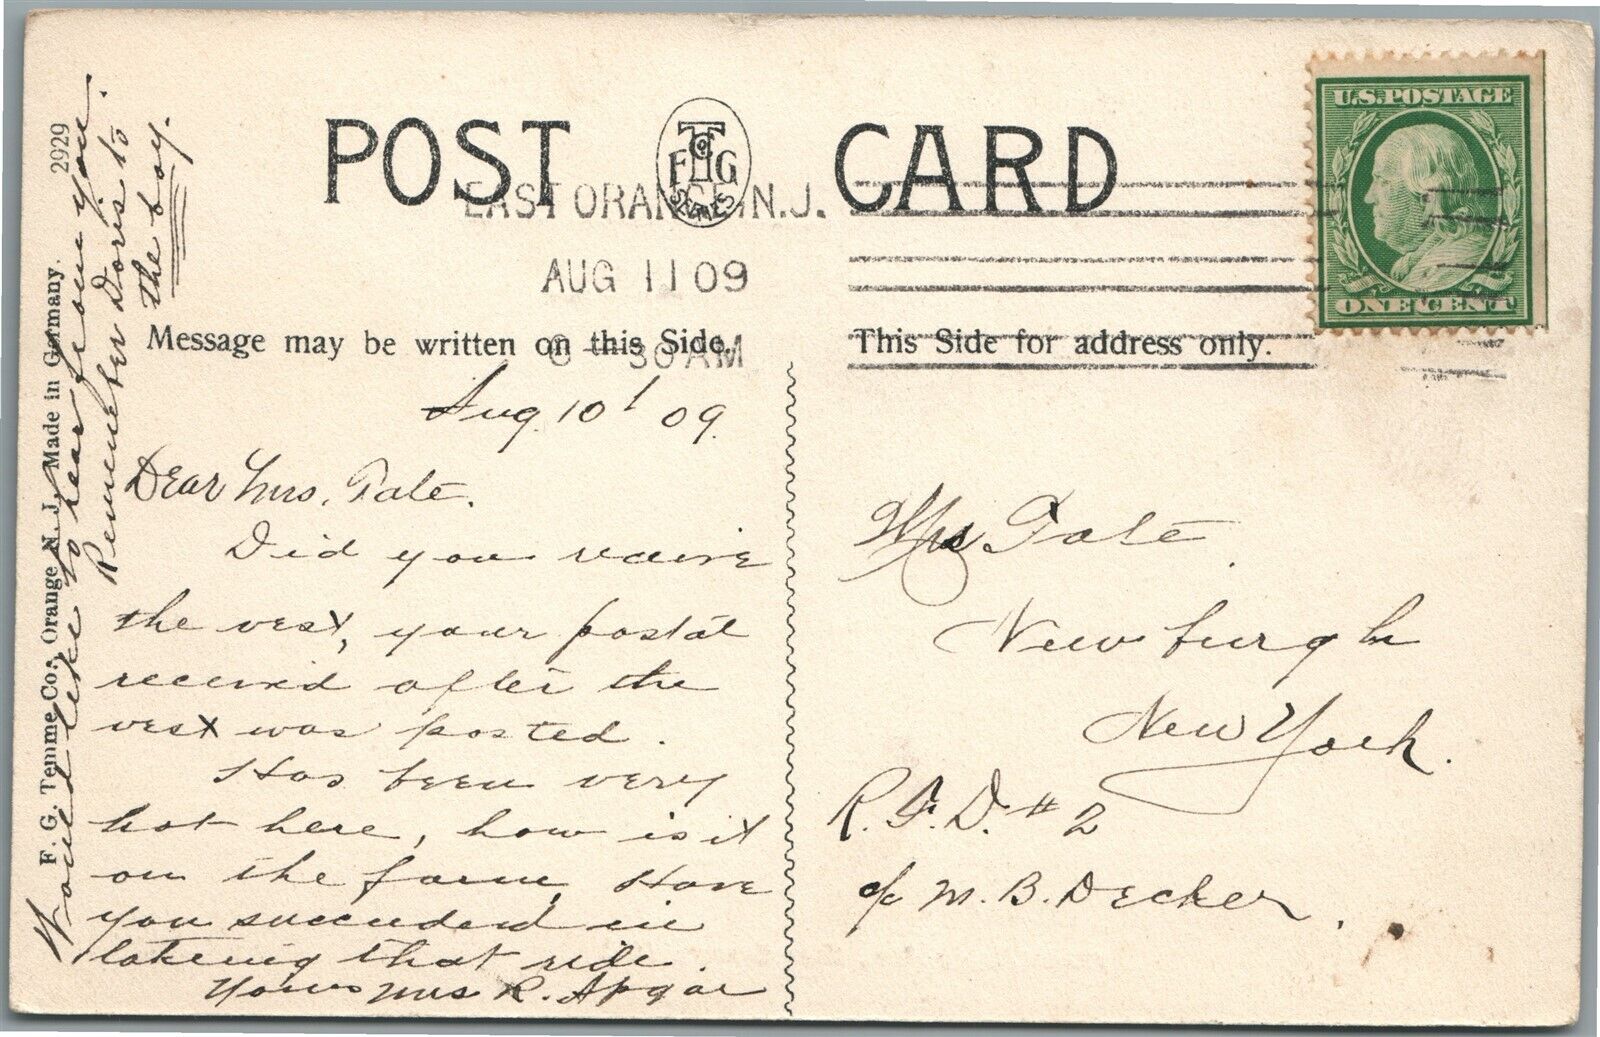 POST CARD
F T Co G SERIES
EAST ORANGE, N.J.
AUG 11 09
8 - 30 AM
U.S. POSTAGE
ONE CENT
Message may be written on this Side.
This Side for address only.
Aug. 10 / 09.
Dear Mrs. Tate.
Did you receive
the vest, your postal
received after the
vest was posted.
Has been very
hot here, how is it
on the farm, Have
you succeeded in
taking that ride.
Yours Mrs R. Apgar
Would like to hear from you.
Remember Doris to
the boy.
F. G. Temme Co., Orange N. J. Made in Germany. 2929
Mrs Tate
Newburgh
New York.
R. F. D. # 2
c/o M. B. Decker.